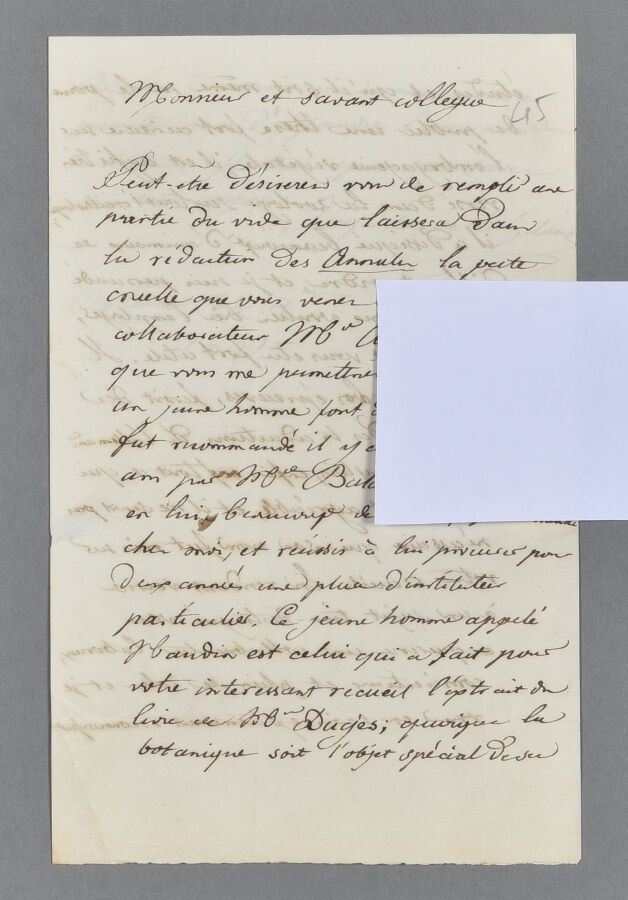 Monsieur et savant collegue
45
Peut-être désirerez vous de remplir une
partie du vide que laissera dans
la rédaction des Annales la perte
cruelle que vous venez
collaborateur Mr
que vous me permettrez
un jeune homme fort
fut recommandé il y
ans par Mr
en lui beaucoup de
chez moi, et réussis à lui procurer pour
deux années une place d'instituteur
particulier. Ce jeune homme appelé
Naudin est celui qui a fait pour
votre interessant recueil l'extrait du
livre de Mr Dugès; quoique la
botanique soit l'objet spécial de ses